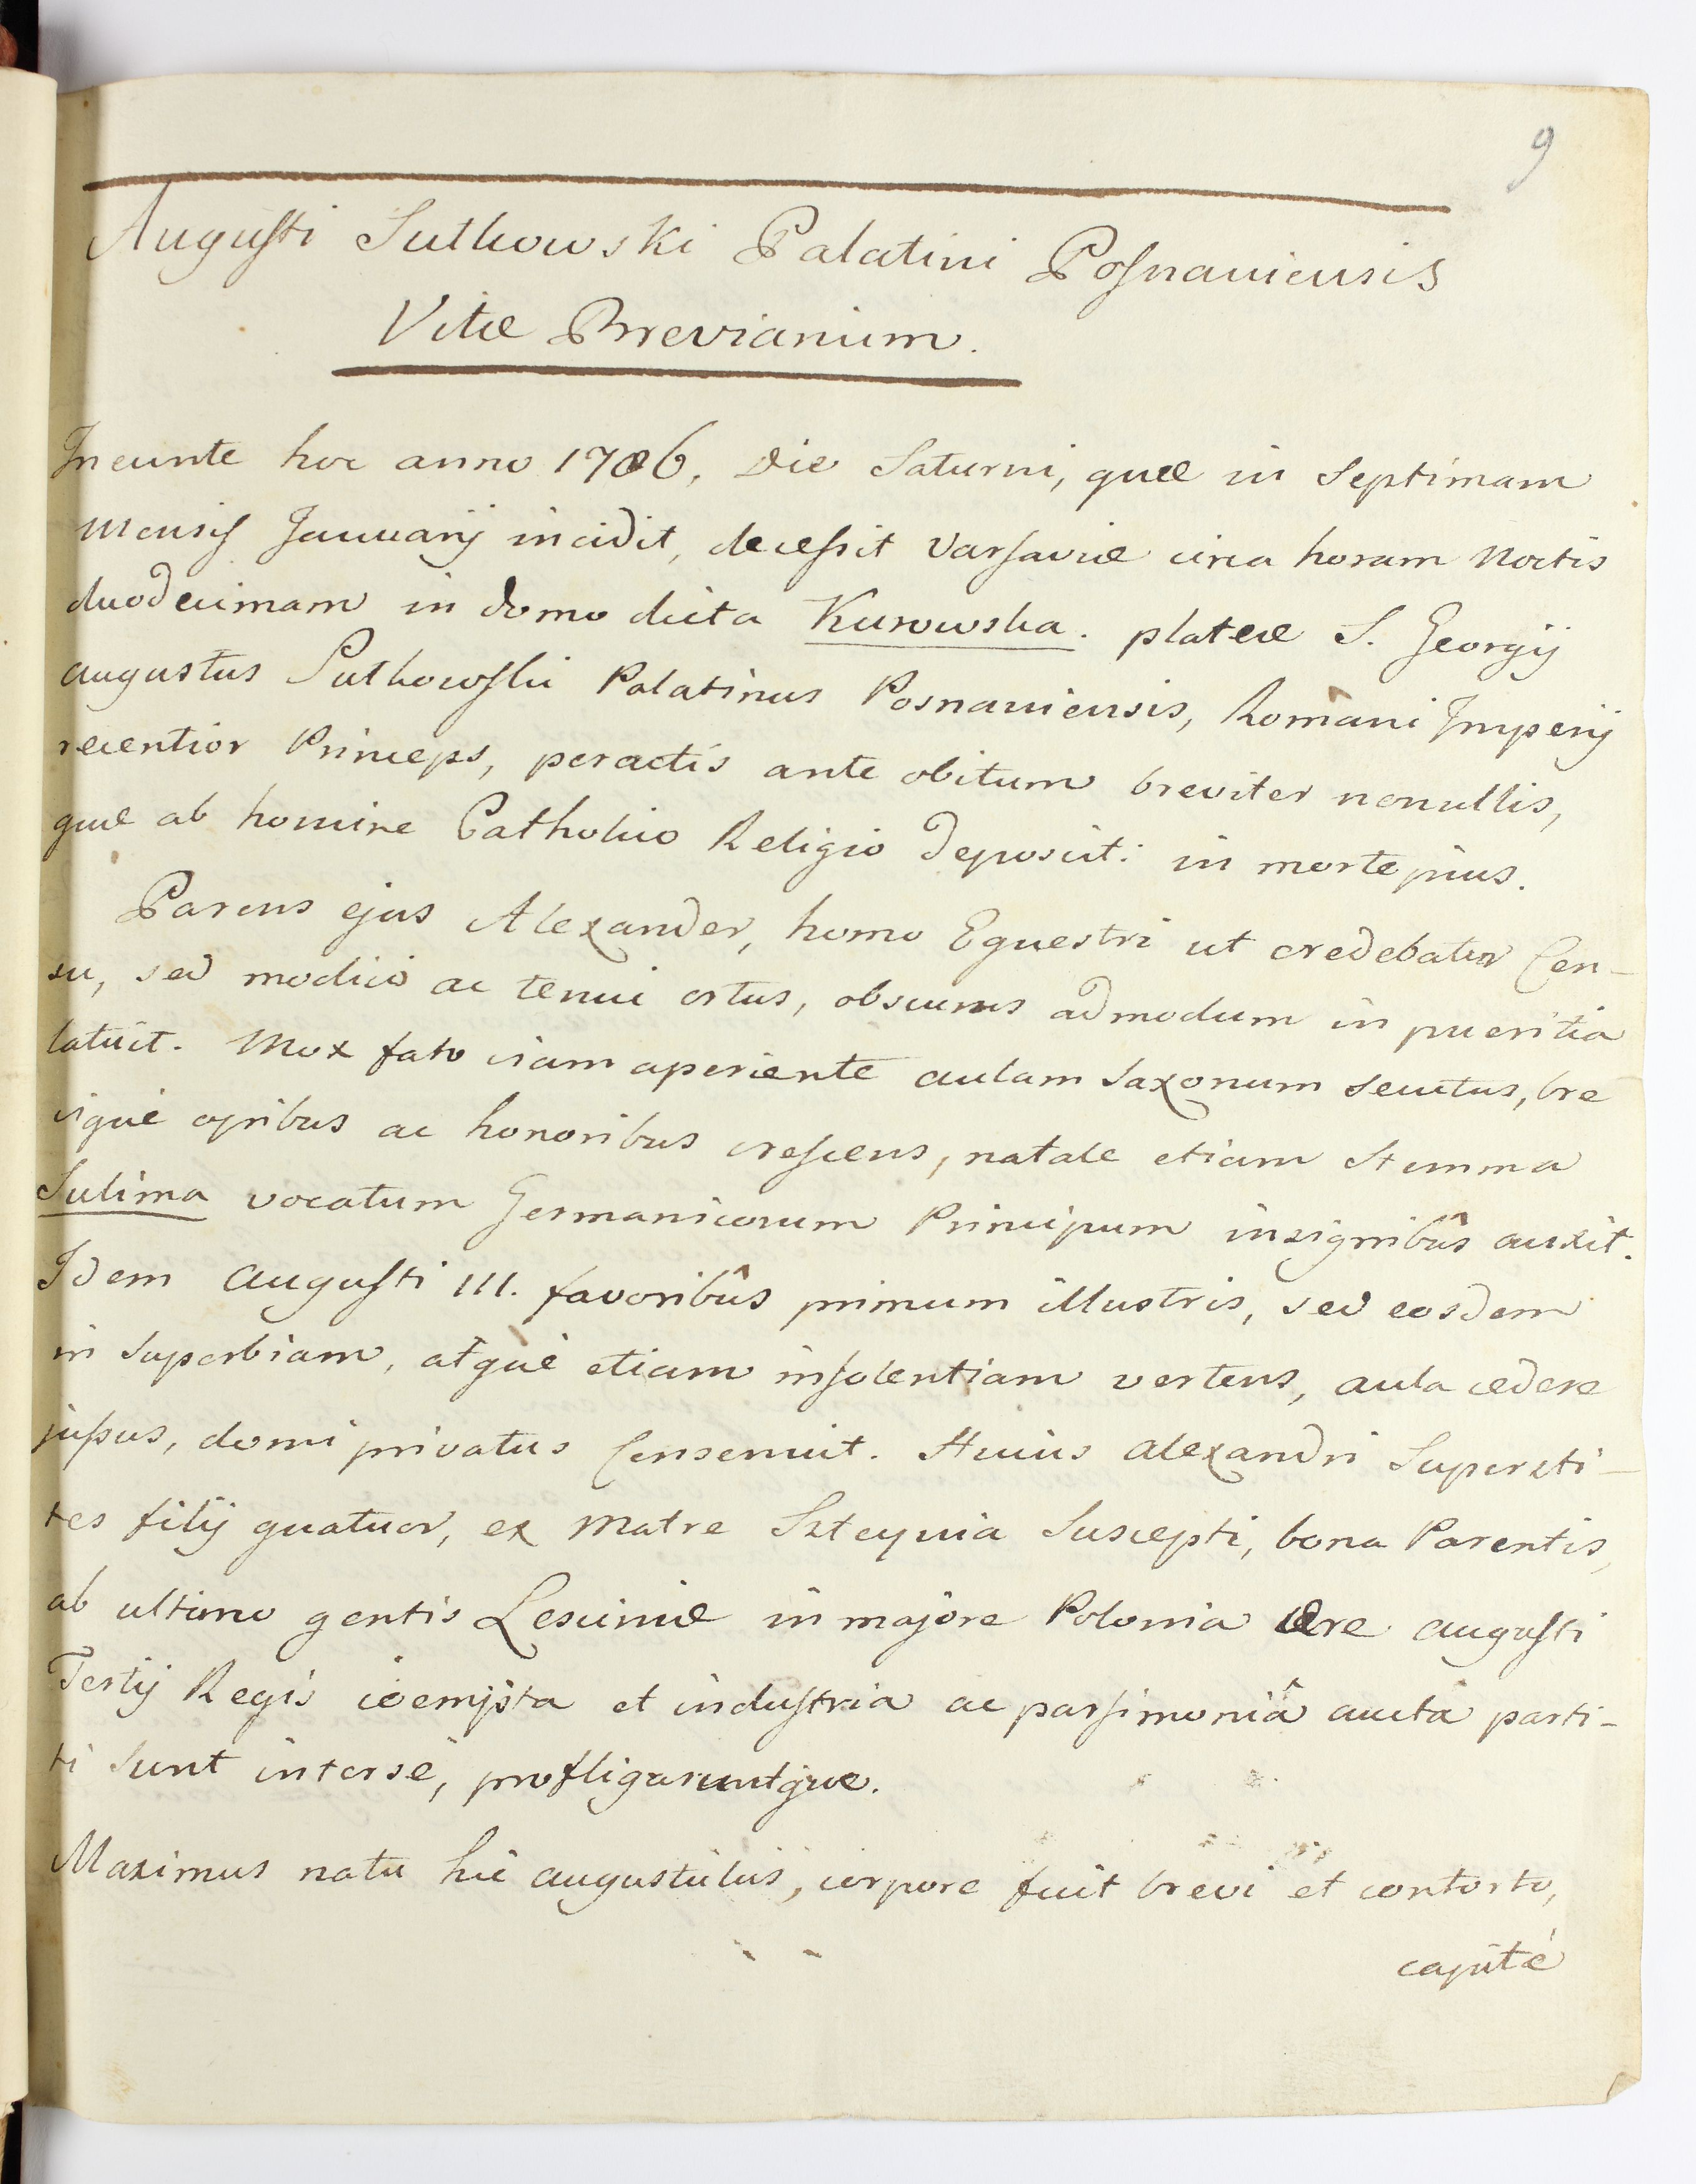 9
Augusti Sulkowski Palatini Posnaniensis
Vitæ Breviarium.
Ineunte hoc anno 1786, Die Saturni, quæ in Septimam
mensis Januarij incidit, decessit Varsaviæ circa horam noctis
duodecimam in domo dicta Kurowska. plateæ S. Georgij
augustus Sulkowski Palatinus Posnaniensis, Romani Imperij
recentior Princeps, peractis ante obitum breviter nonullis,
quæ ab homine Catholico Religio deposcit: in morte pius.
Parens ejus Alexander, homo Equestri ut credebatur Cen-
su, sed modico ac tenui ortus, obscurus admodum in pueritia
latuit. Mox fato viam aperiente aulam Saxonum secutus, bre
vique opibus ac honoribus crescens, natale etiam Stemma
Sulima vocatum Germanicorum Principum insignibûs auxit.
Idem Augusti III. favoribûs primum illustris, sed eosdem
in Superbiam, atque etiam insolentiam vertens, aula cedere
jussus, domi privatus Consenuit. Huius Alexandri Supersti-
tes filij quatuor, ex Matre Szteynia Suscepti, bona Parentis,
ab ultimo gentis Lesciniæ in majore Polonia ære Augusti
Tertij Regis coempta et industria ac parsimoniâ aucta parti-
ti Sunt interse, profligaruntque.
Maximus natu hic augustulus, corpore fuit brevi et contorto,
capite